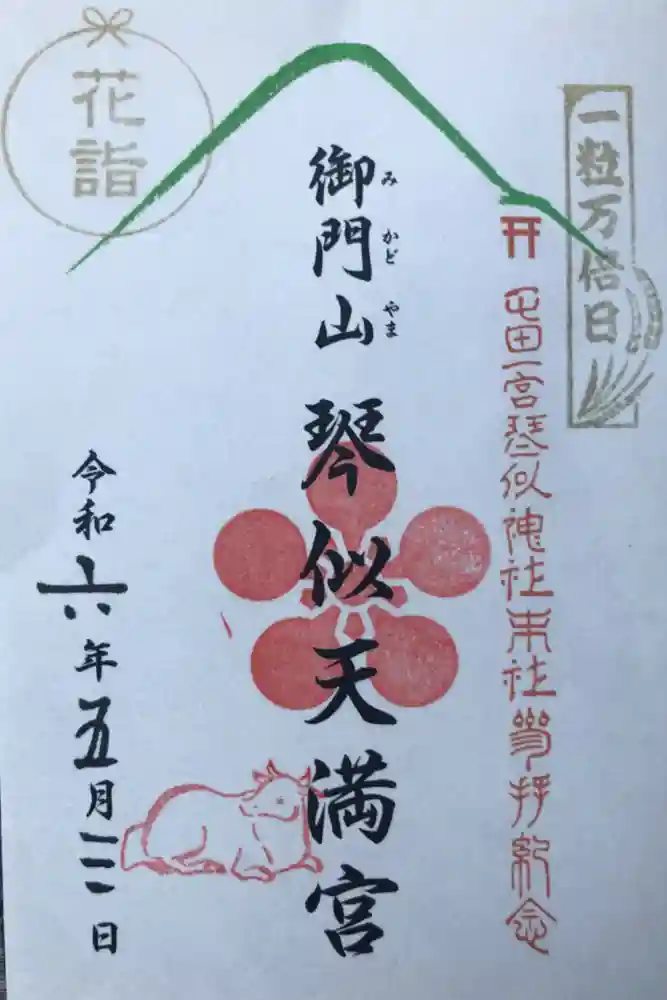 一粒万倍日
屯田一宮琴似神社末社参拝紀念
御門山 琴似天満宮
み かど やま
花詣
令和六年五月 日